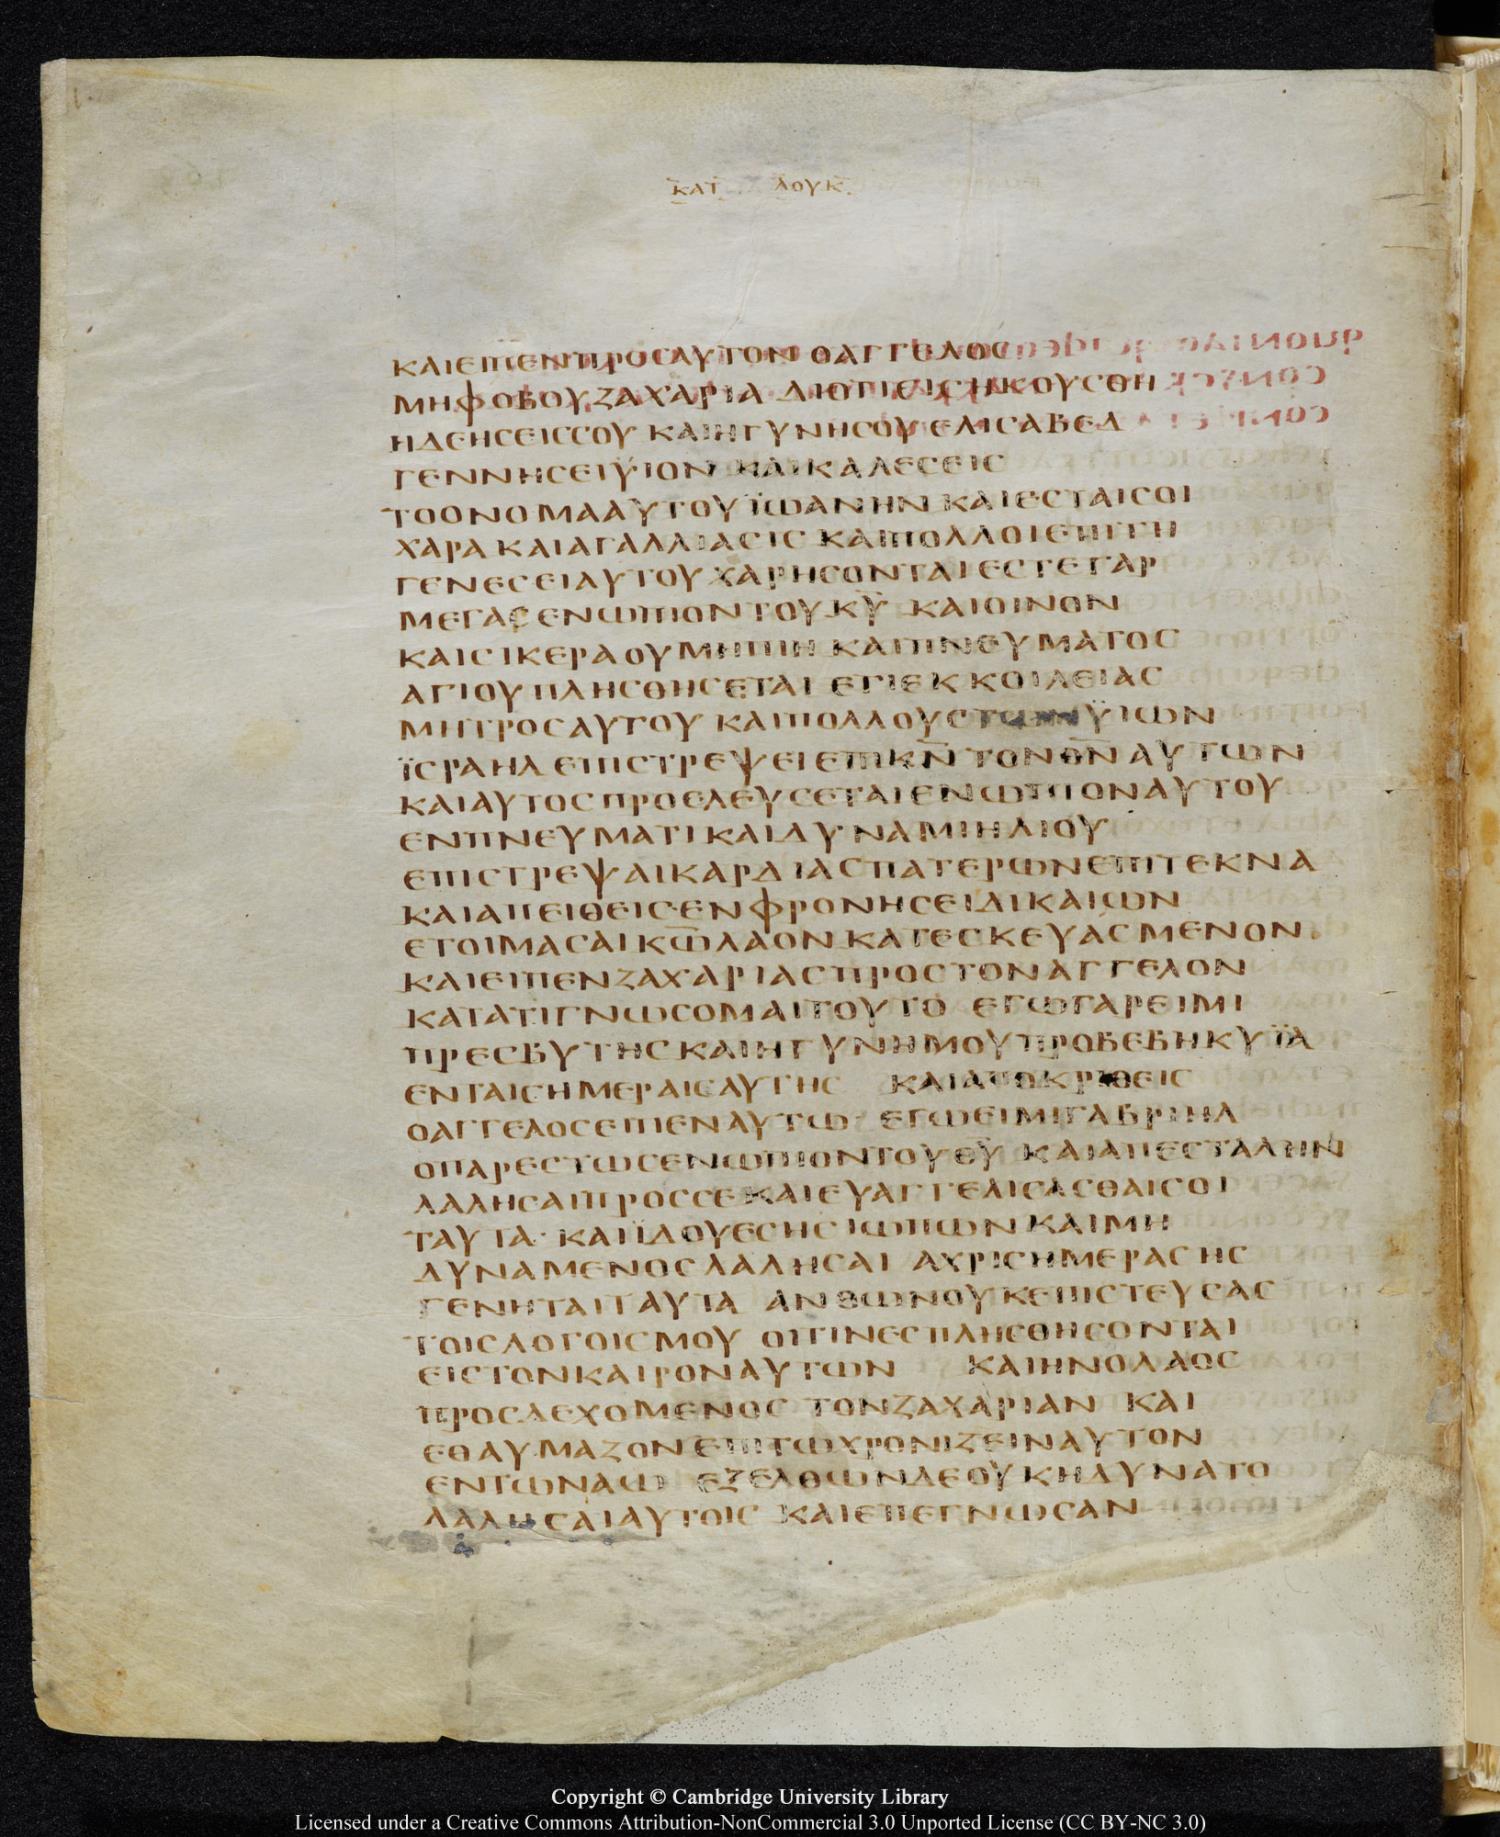 ΚΑΤ ΛΟΥΚ
ΚΑΙΕΙΠΕΝΠΡΟΣΑΥΤΟΝ ΟΑΓΓΕΛΟΣ
ΜΗΦΟΒΟΥΖΑΧΑΡΙΑ ΔΙΟΤΙΕΙΣΗΚΟΥΣΘΗ
ΗΔΕΗΣΕΙΣΣΟΥ ΚΑΙΗΓΥΝΗΣΟΥΕΛΙΣΑΒΕΔ
ΓΕΝΝΗΣΕΙΫΙΟΝ ΚΑΙΚΑΛΕΣΕΙΣ
ΤΟΟΝΟΜΑΑΥΤΟΥΪΩΑΝΗΝ ΚΑΙΕΣΤΑΙΣΟΙ
ΧΑΡΑ ΚΑΙΑΓΑΛΛΙΑΣΙΣ ΚΑΙΠΟΛΛΟΙΕΠΙΤΗ
ΓΕΝΕΣΕΙΑΥΤΟΥ ΧΑΡΗΣΟΝΤΑΙ ΕΣΤΕΓΑΡ
ΜΕΓΑΣΕΝΩΠΙΟΝΤΟΥΚ̅Υ̅ ΚΑΙΟΙΝΟΝ
ΚΑΙΣΙΚΕΡΑΟΥΜΗΠΙΗ ΚΑΙΠΝΕΥΜΑΤΟΣ
ΑΓΙΟΥΠΛΗΣΘΗΣΕΤΑΙ ΕΤΙΕΚΚΟΙΛΕΙΑΣ
ΜΗΤΡΟΣΑΥΤΟΥ ΚΑΙΠΟΛΛΟΥΣΤΩΝΫΙΩΝ
ΪΣΡΑΗΛ ΕΠΙΣΤΡΕΨΕΙΕΠΙΚ̅Ν̅ ΤΟΝΘ̅Ν̅ ΑΥΤΩΝ
ΚΑΙΑΥΤΟΣΠΡΟΕΛΕΥΣΕΤΑΙΕΝΩΠΙΟΝΑΥΤΟΥ
ΕΝΠΝΕΥΜΑΤΙΚΑΙΔΥΝΑΜΙΗΛΙΟΥ
ΕΠΙΣΤΡΕΨΑΙΚΑΡΔΙΑΣΠΑΤΕΡΩΝΕΠΙΤΕΚΝΑ
ΚΑΙΑΠΕΙΘΕΙΣΕΝΦΡΟΝΗΣΕΙΔΙΚΑΙΩΝ
ΕΤΟΙΜΑΣΑΙΚ̅Ω̅ΛΑΟΝ ΚΑΤΕΣΚΕΥΑΣΜΕΝΟΝ
ΚΑΙΕΙΠΕΝΖΑΧΑΡΙΑΣΠΡΟΣΤΟΝΑΓΓΕΛΟΝ
ΚΑΤΑΤΙΓΝΩΣΟΜΑΙΤΟΥΤΟ ΕΓΩΓΑΡΕΙΜΙ
ΠΡΕΣΒΥΤΗΣΚΑΙΗΓΥΝΗΜΟΥΠΡΟΒΕΒΗΚΥΪΑ
ΕΝΤΑΙΣΗΜΕΡΑΙΣΑΥΤΗΣ ΚΑΙΑΠΟΚΡΙΘΕΙΣ
ΟΑΓΓΕΛΟΣΕΙΠΕΝΑΥΤΩ ΕΓΩΕΙΜΙΓΑΒΡΙΗΛ
ΟΠΑΡΕΣΤΩΣΕΝΩΠΙΟΝΤΟΥΘ̅Υ̅ ΚΑΙΑΠΕΣΤΑΛΗΝ
ΛΑΛΗΣΑΙΠΡΟΣΣΕ ΚΑΙΕΥΑΓΓΕΛΙΣΑΣΘΑΙΣΟΙ
ΤΑΥΤΑ· ΚΑΙΪΔΟΥΕΣΗΣΙΩΠΩΝΚΑΙΜΗ
ΔΥΝΑΜΕΝΟΣΛΑΛΗΣΑΙ ΑΧΡΙΣΗΜΕΡΑΣΗΣ
ΓΕΝΗΤΑΙΤΑΥΤΑ ΑΝΘΩΝΟΥΚΕΠΙΣΤΕΥΣΑΣ
ΤΟΙΣΛΟΓΟΙΣΜΟΥ ΟΙΤΙΝΕΣΠΛΗΣΘΗΣΟΝΤΑΙ
ΕΙΣΤΟΝΚΑΙΡΟΝΑΥΤΩΝ ΚΑΙΗΝΟΛΑΟΣ
ΠΡΟΣΔΕΧΟΜΕΝΟΣ ΤΟΝΖΑΧΑΡΙΑΝ ΚΑΙ
ΕΘΑΥΜΑΖΟΝΕΠΙΤΩΧΡΟΝΙΖΕΙΝΑΥΤΟΝ
ΕΝΤΩΝΑΩ ΕΞΕΛΘΩΝΔΕΟΥΚΗΔΥΝΑΤΟ
ΛΑΛΗΣΑΙΑΥΤΟΙΣ ΚΑΙΕΠΕΓΝΩΣΑΝ
Copyright © Cambridge University Library
Licensed under a Creative Commons Attribution-NonCommercial 3.0 Unported License (CC BY-NC 3.0)